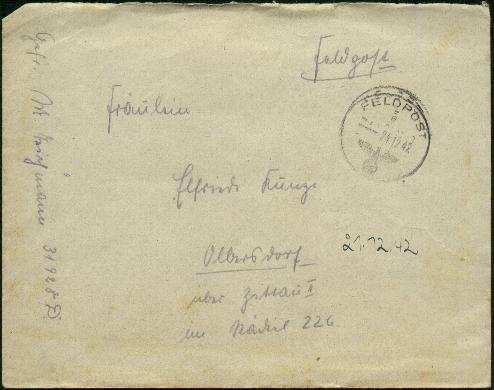 Feldpost
FELDPOST
21.12.42
Fräulein
Elfriede Kunze
Olbersdorf
21.12.42
über Zittau II
226
Gefr. 31928 D